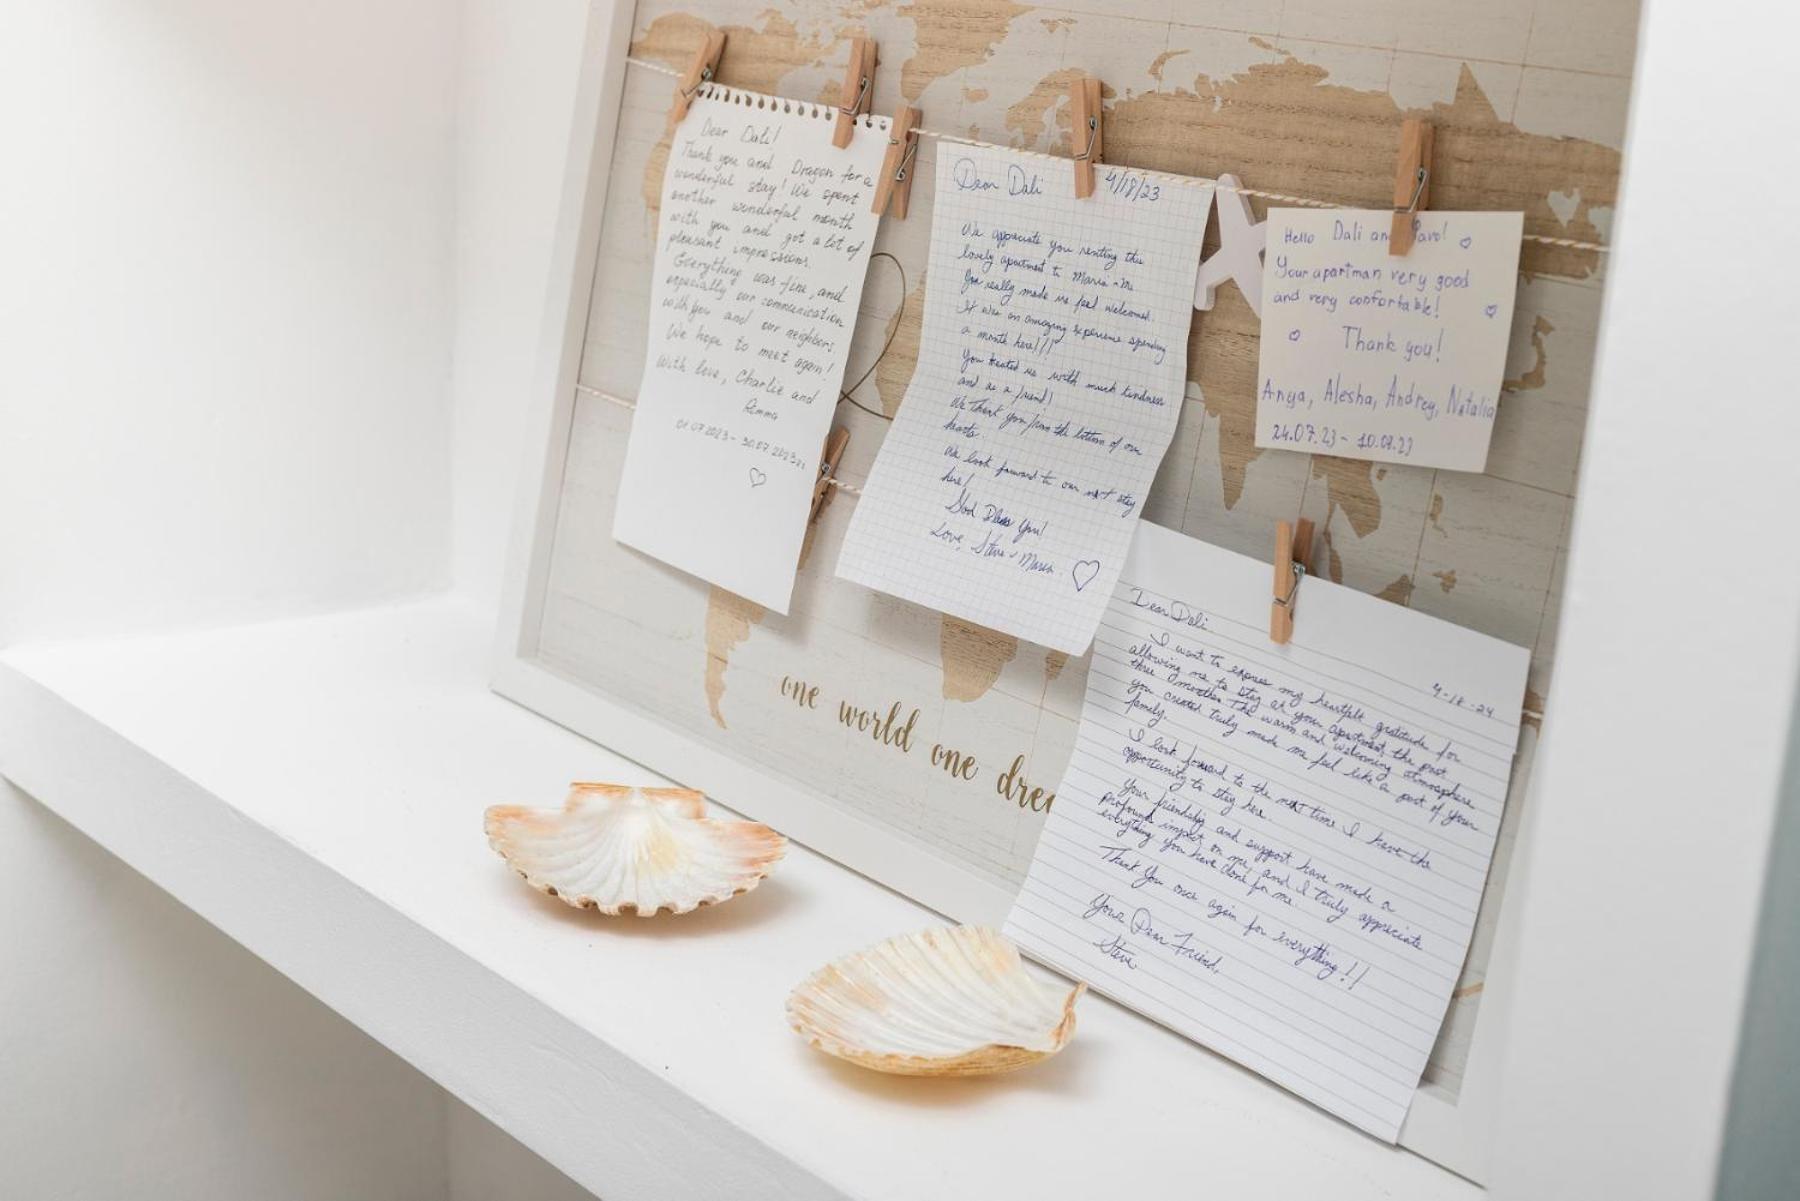 Dear Dali!
Thank you and Dragon for a
wonderful stay! We spent
another wonderful month
with you and got a lot of
pleasant impressions.
Everything was fine, and
especially our communication
with you and our neighbors.
We hope to meet again!
With love, Charlie and
01.07.2023 - 30.07.2023
Dear Dali 4/18/23
We appreciate you renting this
lovely apartment to Maria + me
You really made us feel welcomed.
It was an amazing experience spending
a month here!!!
You treated us with much kindness
and as a friend!
We Thank you from the bottom of our
hearts.
We look forward to our next stay
here!
God Bless You!
Love, Steve + Maria
Hello Dali and Pavo!
Your apartman very good
and very confortable!
Thank you!
Anya, Alesha, Andrey, Natalia
24.07.23 - 10.08.23
Dear Dali
4-18-24
I want to express my heartfelt gratitude for
allowing me to stay at your apartment the past
three months. The warm and welcoming atmosphere
you created truly made me feel like a part of your
family.
I look forward to the next time I have the
opportunity to stay here.
Your friendship and support have made a
profound impact on me, and I truly appreciate
everything you have done for me.
Thank You once again for everything!!
Your Dear Friend,
Steve
one world one drea